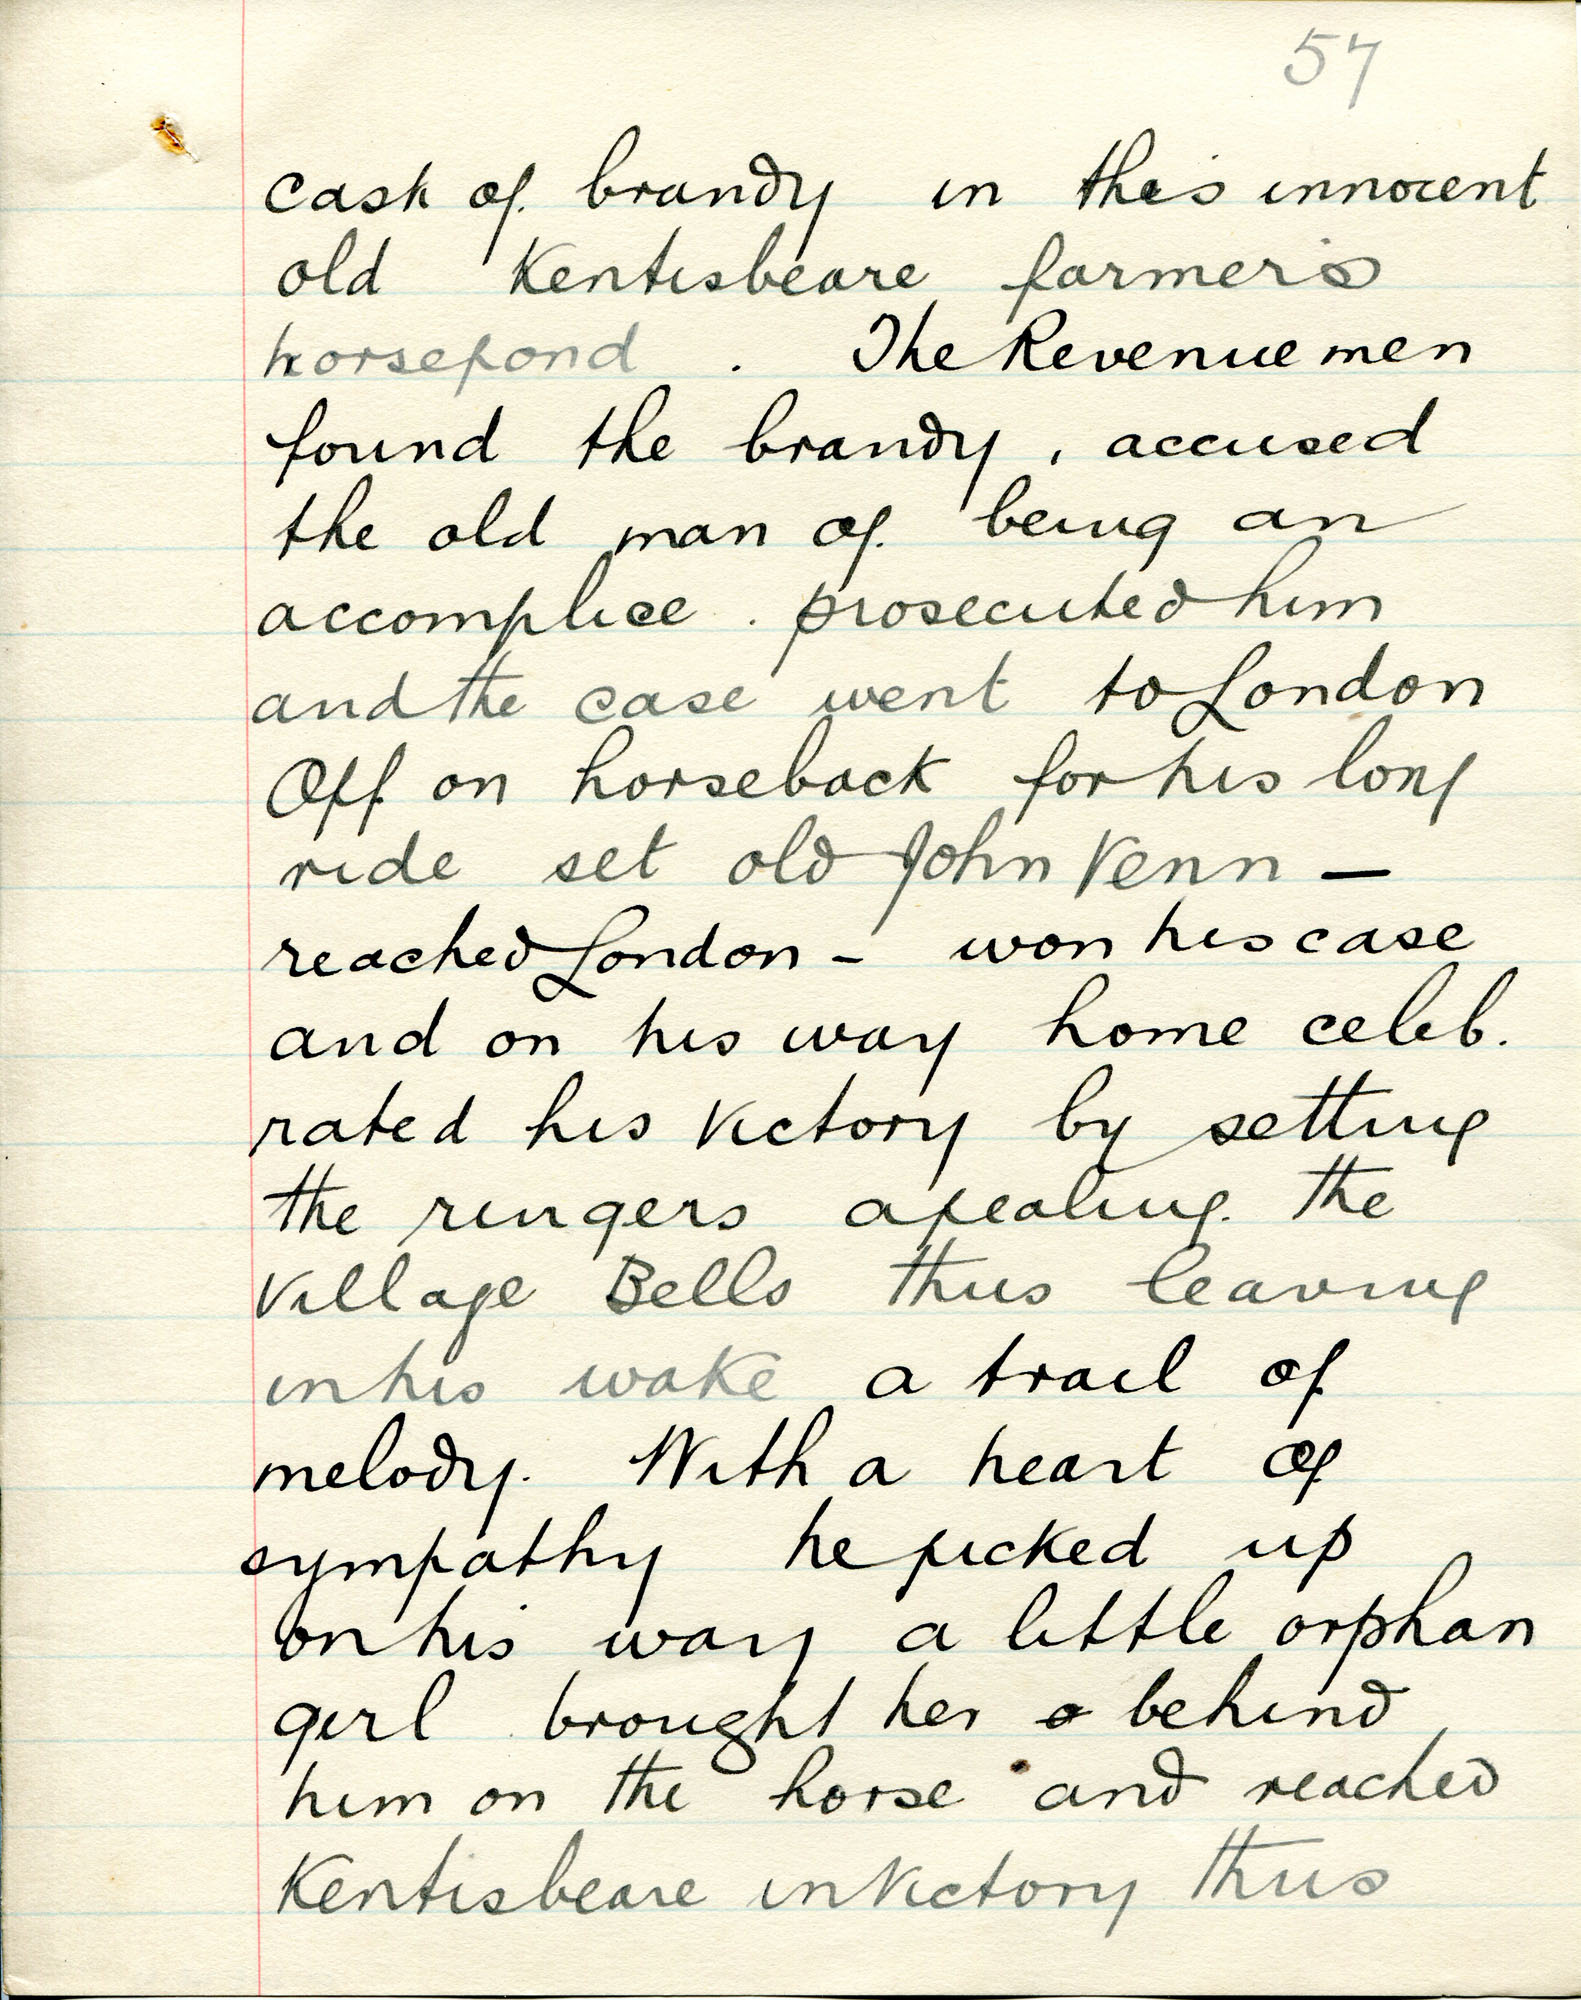 57
cask of brandy in this innocent
old Kentisbeare farmer's
horsepond . The Revenue men
found the brandy , accused
the old man of being an
accomplice . prosecuted him
and the case went to London
Off on horseback for his long
ride set old John Venn —
reached London – won his case
and on his way home celeb.
rated his victory by setting
the ringers apealing. the
Village Bells thus leaving
in his wake a trail of
melody. With a heart of
sympathy he picked up
on his way a little orphan
girl brought her behind
him on the horse and reached
Kentisbeare in Victory thus